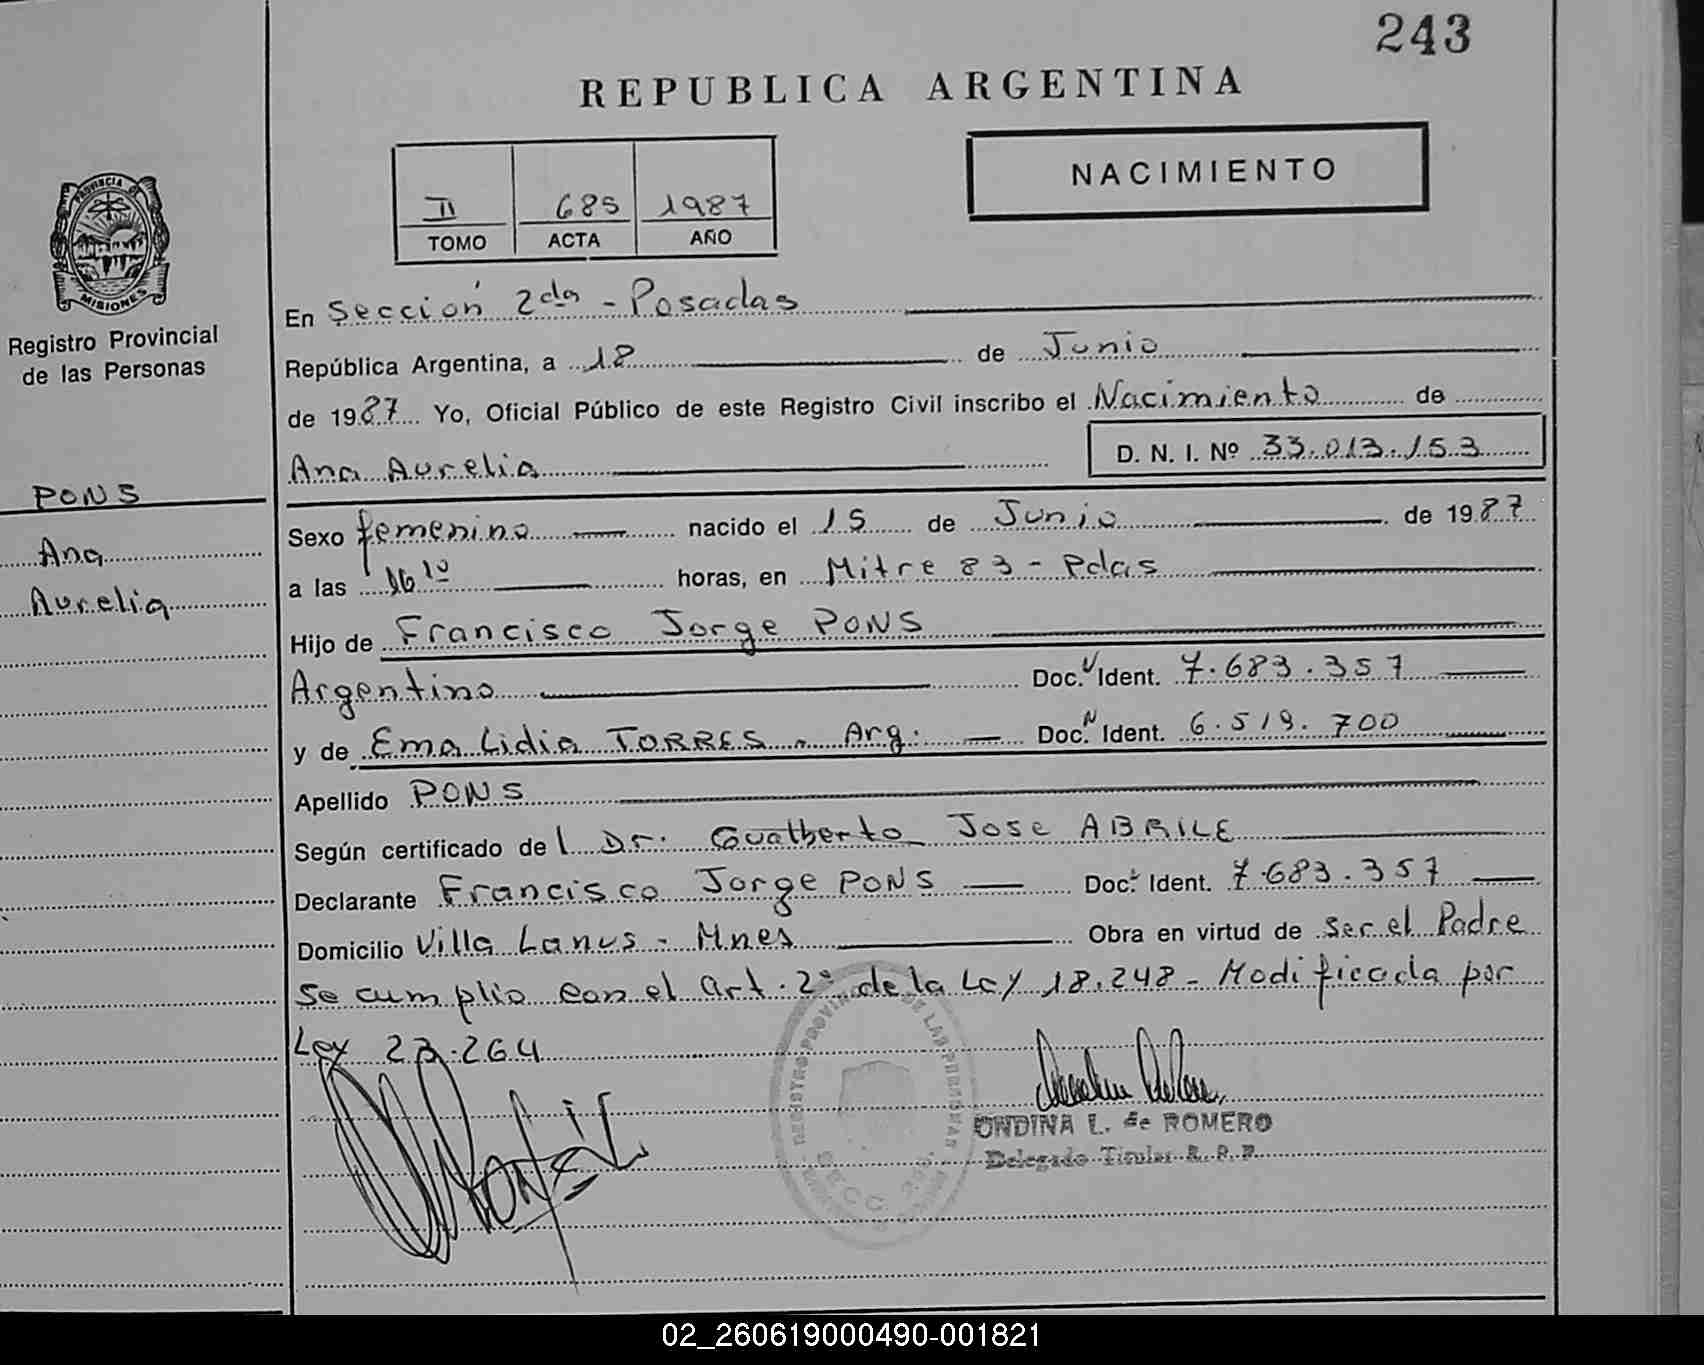 243
REPUBLICA ARGENTINA
NACIMIENTO
II 685 1987
TOMO ACTA AÑO
PROVINCIA DE
MISIONES
Registro Provincial
de las Personas
PONS
Ana
Aurelia
En Sección 2da - Posadas
República Argentina, a 18 de Junio
de 1987 Yo, Oficial Público de este Registro Civil inscribo el Nacimiento de
Ana Aurelia D. N. I. Nº 33.013.153
Sexo femenino nacido el 15 de Junio de 1987
a las 16 10 horas, en Mitre 83 - Pdas
Hijo de Francisco Jorge PONS
Argentino Doc. Ident. 7.683.357
y de Ema Lidia TORRES - Arg. Doc. N Ident. 6.519.700
Apellido PONS
Según certificado del Dr. Gualberto Jose ABRILE
Declarante Francisco Jorge PONS Doc. Ident. 7.683.357
Domicilio Villa Lanus - Mnes Obra en virtud de ser el Padre
Se cumplio con el art. 2° de la Ley 18.248 - Modificada por
Ley 23.264
REGISTRO PROVINCIAL DE LAS PERSONAS
SECC. 2da
ONDINA L. de ROMERO
Delegado Titular R. P. P.
02_260619000490-001821